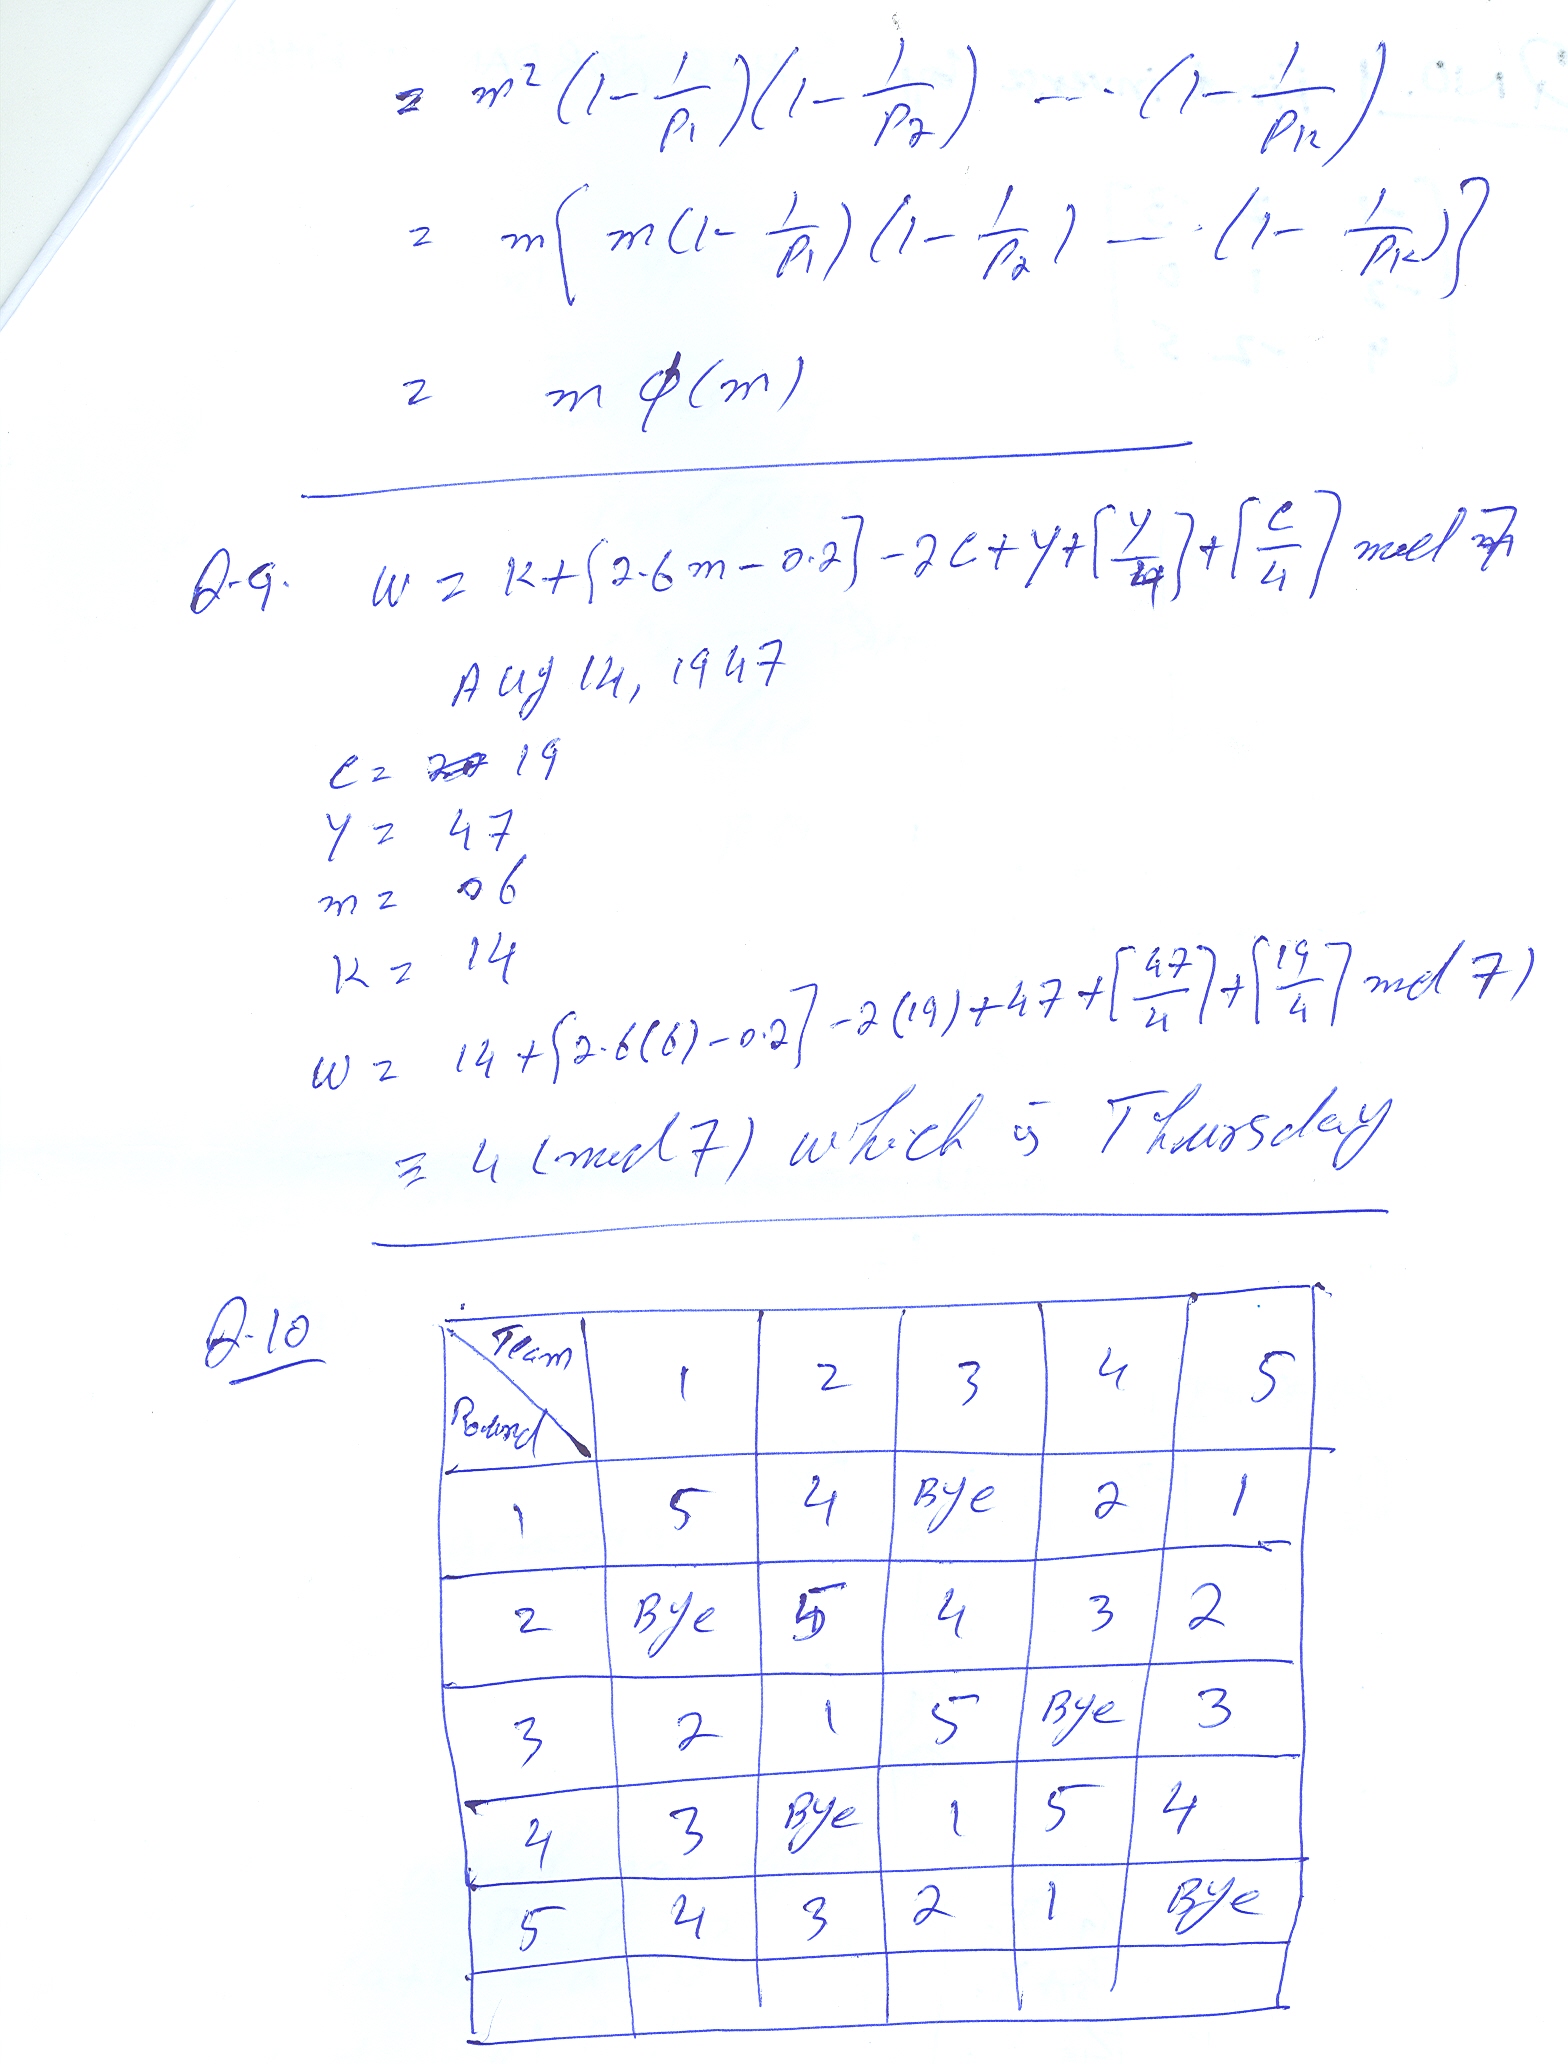 = m² (1 - 1/P₁)(1 - 1/P₂) --- (1 - 1/Pₖ)
= m{ m(1 - 1/P₁)(1 - 1/P₂) --- (1 - 1/Pₖ)}
= m φ(m)
Q-9. W = K + [2.6m - 0.2] - 2C + Y + [Y/4] + [C/4] mod 7
Aug 14, 1947
C = 19
Y = 47
m = 06
K = 14
W = 14 + [2.6(6) - 0.2] - 2(19) + 47 + [47/4] + [19/4] mod 7)
≡ 4 (mod 7) which is Thursday
Q-10
Team 1 2 3 4 5
Round
1 5 4 Bye 2 1
2 Bye 5 4 3 2
3 2 1 5 Bye 3
4 3 Bye 1 5 4
5 4 3 2 1 Bye